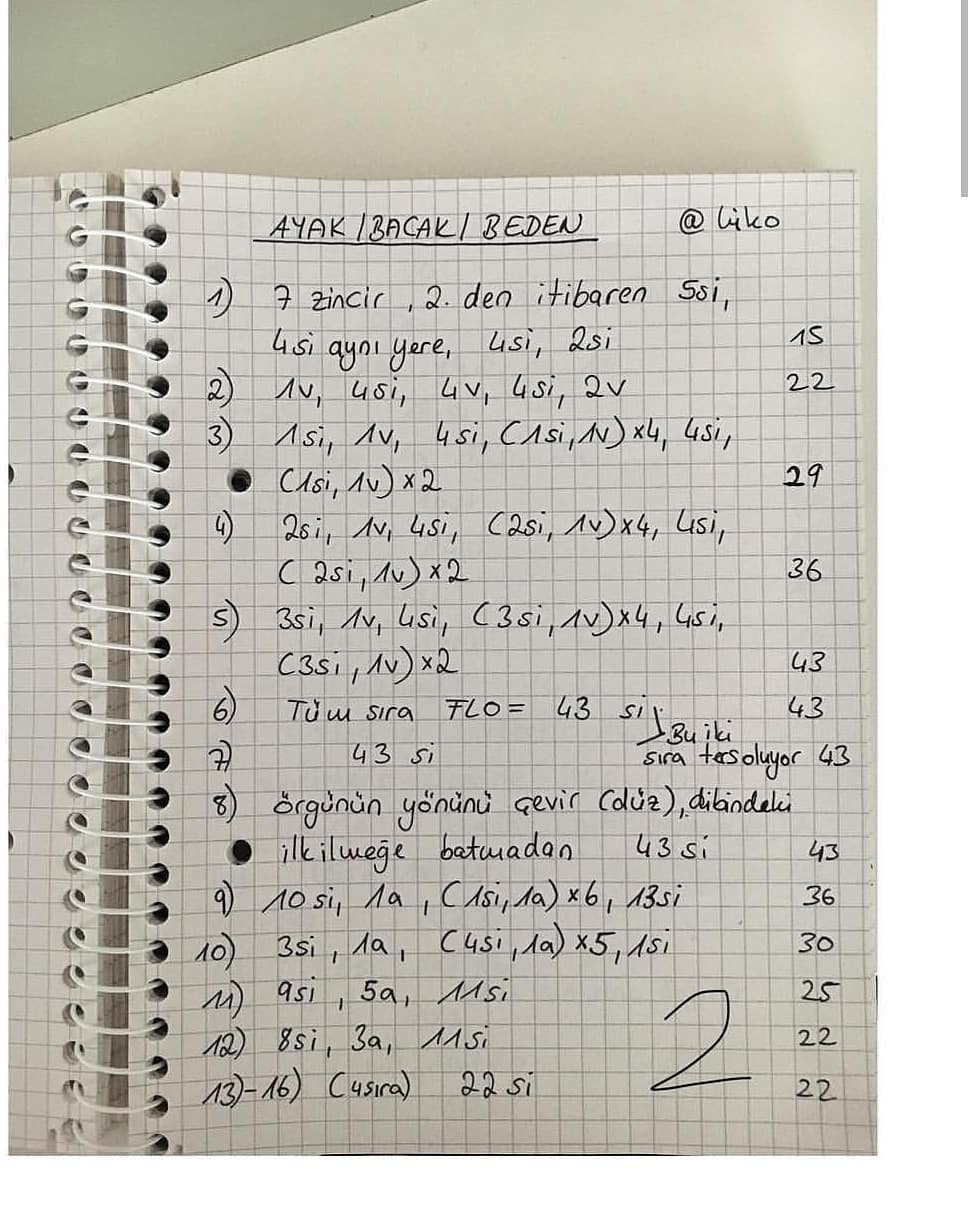 AYAK / BACAK / BEDEN @ liko
1) 7 zincir , 2. den itibaren 5si,
4si aynı yere, 4si, 2si 15
2) 1v, 4si, 4v, 4si, 2v 22
3) 1si, 1v, 4si, (1si, 1v) x4, 4si,
(1si, 1v) x 2 29
4) 2si, 1v, 4si, (2si, 1v) x4, 4si,
( 2si, 1v) x2 36
5) 3si, 1v, 4si, (3si, 1v) x4, 4si,
(3si, 1v) x2 43
6) Tüm sıra FLO = 43 si 43
Bu iki
7) 43 si sıra ters oluyor 43
8) örgünün yönünü çevir (düz), dibindeki
ilk ilmeğe batmadan 43 si 43
9) 10 si, 1a , (1si, 1a) x 6, 13si 36
10) 3si , 1a , (4si, 1a) x 5, 1si 30
11) 9si , 5a, 11si 25
12) 8si, 3a, 11si 22
13)-16) (4sıra) 22 si 22
2